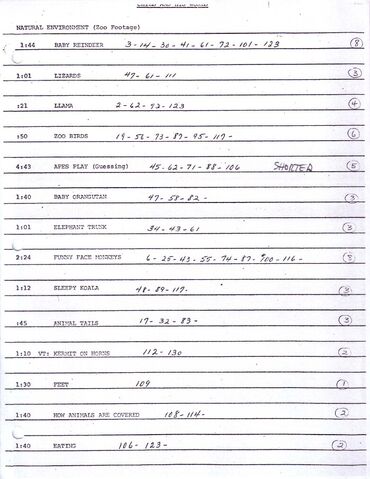 NATURAL ENVIRONMENT (Zoo Footage)
1:44 BABY REINDEER 3-14-30-41-61-72-101-123 8
1:01 LIZARDS 47-61-111 3
:21 LLAMA 2-62-92-123 4
:50 ZOO BIRDS 19-56-73-87-95-117- 6
4:43 APES PLAY (Guessing) 45-62-71-88-106 SHORTED 5
1:40 BABY ORANGUTAN 47-58-82- 3
1:01 ELEPHANT TRUNK 34-43-61 3
2:24 FUNNY FACE MONKEYS 6-25-43-55-74-87-100-116- 8
1:12 SLEEPY KOALA 48-89-117- 3
:45 ANIMAL TAILS 17-32-83- 3
1:10 VT: KERMIT ON HORNS 112-130 2
1:30 FEET 109 1
1:40 HOW ANIMALS ARE COVERED 108-114- 2
1:40 EATING 106-123- 2